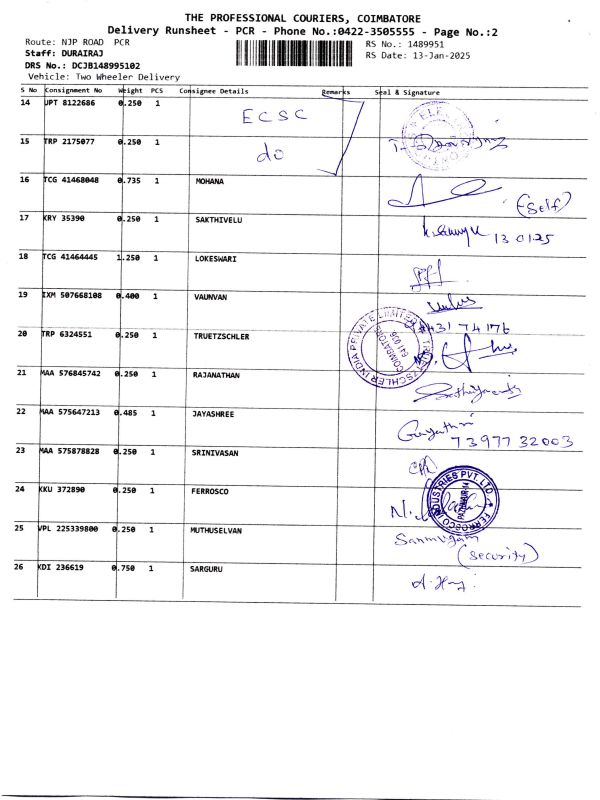 THE PROFESSIONAL COURIERS, COIMBATORE
Delivery Runsheet - PCR - Phone No.:0422-3505555 - Page No.:2
Route: NJP ROAD PCR RS No.: 1489951
Staff: DURAIRAJ RS Date: 13-Jan-2025
DRS No.: DCJB148995102
Vehicle: Two Wheeler Delivery
S No Consignment No Weight PCS Consignee Details Remarks Seal & Signature
14 UPT 8122686 0.250 1 ECSC
15 TRP 2175077 0.250 1 do
16 TCG 41468048 0.735 1 MOHANA (Self)
17 KRY 35390 0.250 1 SAKTHIVELU 13 01 25
18 TCG 41464445 1.250 1 LOKESWARI
19 IXM 507668108 0.400 1 VAUNVAN
20 TRP 6324551 0.250 1 TRUETZSCHLER
TRUETZSCHLER INDIA PRIVATE LIMITED
COIMBATORE
641 036
21 MAA 576845742 0.250 1 RAJANATHAN
22 MAA 575647213 0.485 1 JAYASHREE Gayathri
73977 32003
23 MAA 575878828 0.250 1 SRINIVASAN
24 KKU 372890 0.250 1 FERROSCO
FERROSCO INDUSTRIES PVT. LTD.
25 VPL 225339800 0.250 1 MUTHUSELVAN Sanmugam
(Security)
26 KDI 236619 0.750 1 SARGURU